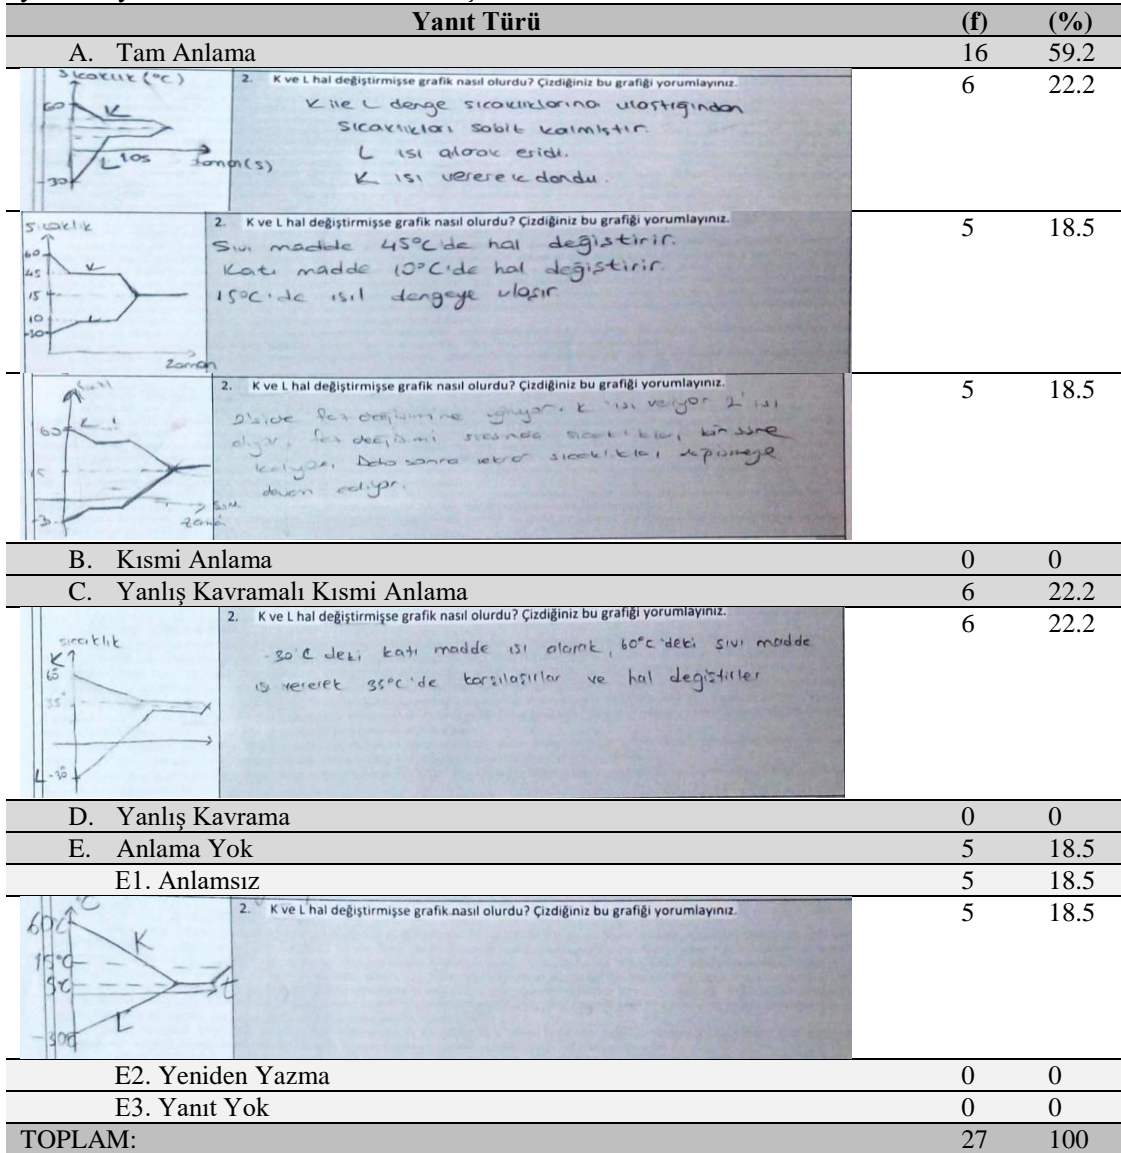 Yanıt Türü (f) (%)
A. Tam Anlama 16 59.2
Sıcaklık (°C)
60
K
L
10s
zaman(s)
-30
2. K ve L hal değiştirmişse grafik nasıl olurdu? Çizdiğiniz bu grafiği yorumlayınız.
K ile L denge sıcaklıklarına ulaştığından
sıcaklıkları sabit kalmıştır.
L ısı alarak eridi.
K ısı vererek dondu.
6 22.2
Sıcaklık
60
45
K
15
10
L
-30
Zaman
2. K ve L hal değiştirmişse grafik nasıl olurdu? Çizdiğiniz bu grafiği yorumlayınız.
Sıvı madde 45°C'de hal değiştirir.
Katı madde 10°C'de hal değiştirir.
15°C'de ısıl dengeye ulaşır
5 18.5
60
15
2. K ve L hal değiştirmişse grafik nasıl olurdu? Çizdiğiniz bu grafiği yorumlayınız.
2'side faz değişimine uğruyor. K ısı veriyor L ısı
alıyor. faz değişimi sırasında sıcaklıkları bir süre
kalıyor. Daha sonra tekrar sıcaklıkları değişmeye
devam ediyor.
5 18.5
B. Kısmi Anlama 0 0
C. Yanlış Kavramalı Kısmi Anlama 6 22.2
sıcaklık
K
60°
35°
L -30°
2. K ve L hal değiştirmişse grafik nasıl olurdu? Çizdiğiniz bu grafiği yorumlayınız.
-30°C deki katı madde ısı alarak, 60°C'deki sıvı madde
ısı vererek 35°C'de karşılaşırlar ve hal değiştirler
6 22.2
D. Yanlış Kavrama 0 0
E. Anlama Yok 5 18.5
E1. Anlamsız 5 18.5
°C
60°C
K
15°C
t
L
-30°C
2. K ve L hal değiştirmişse grafik nasıl olurdu? Çizdiğiniz bu grafiği yorumlayınız.
5 18.5
E2. Yeniden Yazma 0 0
E3. Yanıt Yok 0 0
TOPLAM: 27 100